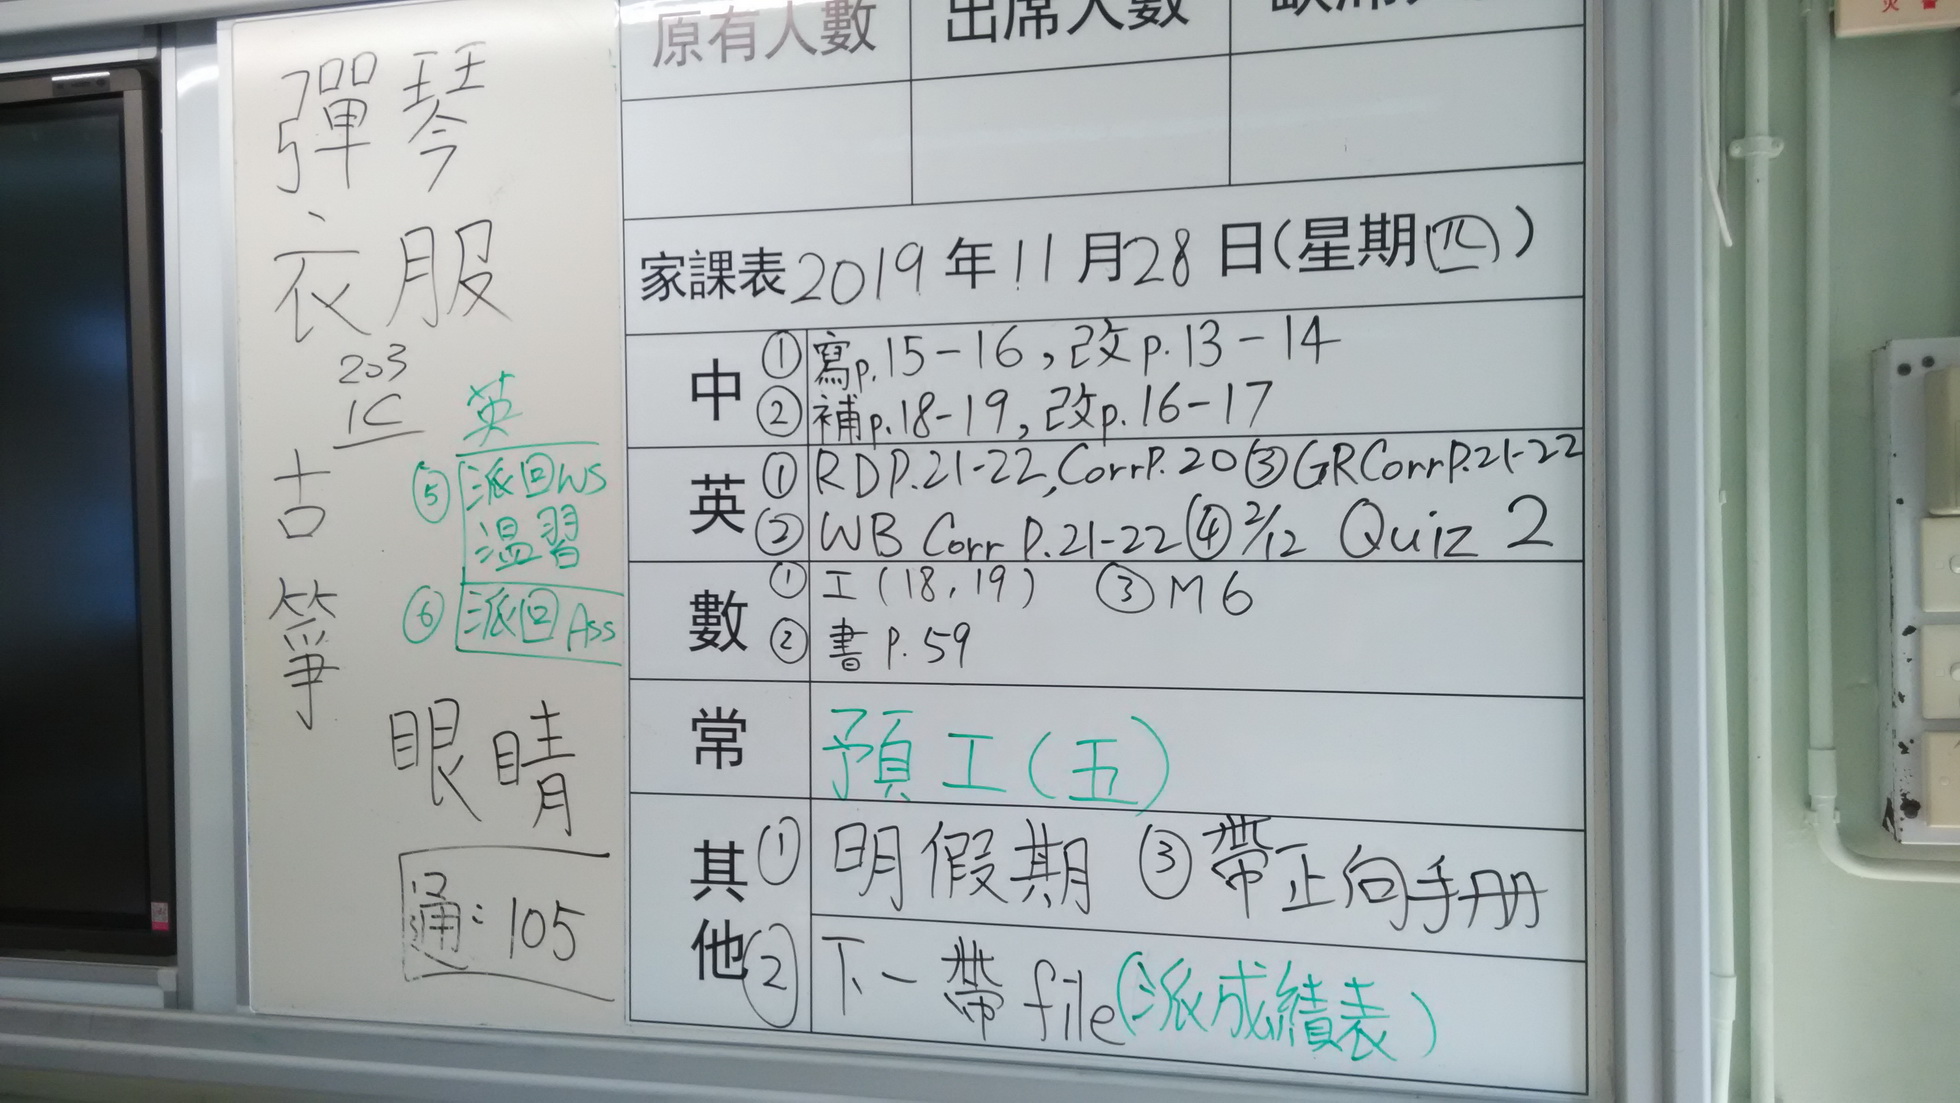 彈琴
衣服
203
1C
古箏
英
⑤ 派回WS
溫習
⑥ 派回Ass
眼睛
通：105
原有人數 出席人數
家課表2019年11月28日(星期四)
中 ① 寫p.15-16，改p.13-14
② 補p.18-19，改p.16-17
英 ① RD P.21-22,Corr P.20 ③ GR Corr P.21-22
② WB Corr P.21-22 ④ 2/12 Quiz 2
數 ① 工(18,19) ③ M6
② 書 P.59
常 預工(五)
其他 ① 明假期 ③ 帶正向手册
② 下一帶file(派成績表)